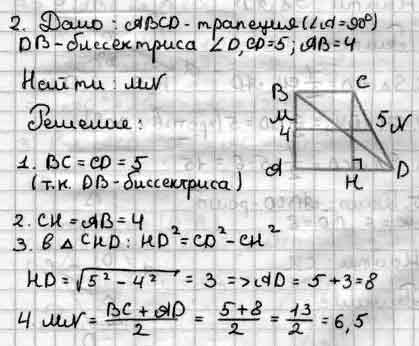 2. Дано: ABCD - трапеция (∠A=90°)
DB - биссектриса ∠D, CD=5; AB=4
Найти: MN
Решение:
B
C
M
4
5
N
A
H
D
1. BC = CD = 5
(т.к. DB - биссектриса)
2. CH = AB = 4
3. В △ CHD: HD² = CD² - CH²
HD = √5² - 4² = 3 => AD = 5 + 3 = 8
4. MN = BC + AD / 2 = 5+8 / 2 = 13 / 2 = 6,5